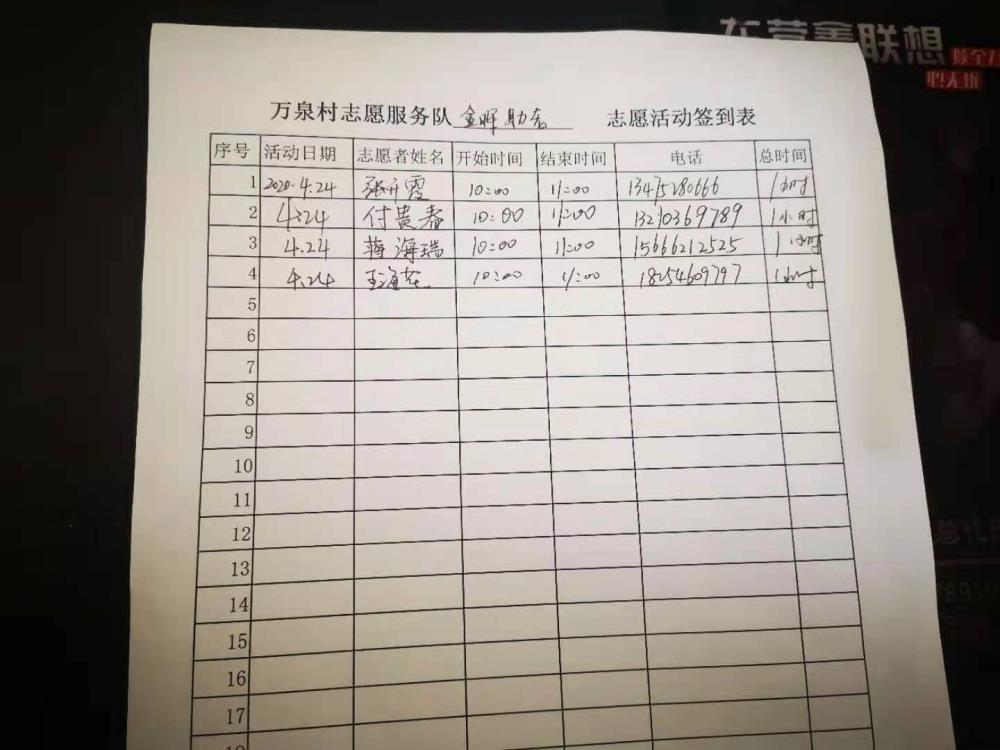 东营鑫联想
做全
心无忧
万泉村志愿服务队 金晖助老 志愿活动签到表
序号 活动日期 志愿者姓名 开始时间 结束时间 电话 总时间
1 2020-4.24 张开霞 10:00 11:00 13475280666 1小时
2 4.24 付贵春 10:00 11:00 13210369789 1小时
3 4.24 蒋海瑞 10:00 11:00 15666212525 1小时
4 4.24 10:00 11:00 18254609797 1小时
5
6
7
8
9
10
11
12
13
14
15
16
17
总代